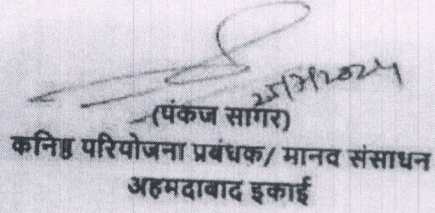 25/7/2024
(पंकज सागर)
कनिष्ठ परियोजना प्रबंधक/ मानव संसाधन
अहमदाबाद इकाई